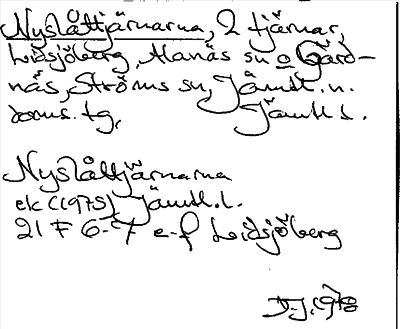 Nyslåttjärnarna, 2 tjärnar,
Lidsjöberg, Alanäs sn o Gård-
näs, Ströms sn, Jämtl. n.
doms. tg, Jämtl.
Nyslåttjärnarna
ek (1975) Jämtl. l.
21 F 6-7 e-f Lidsjöberg
D.J. 1978